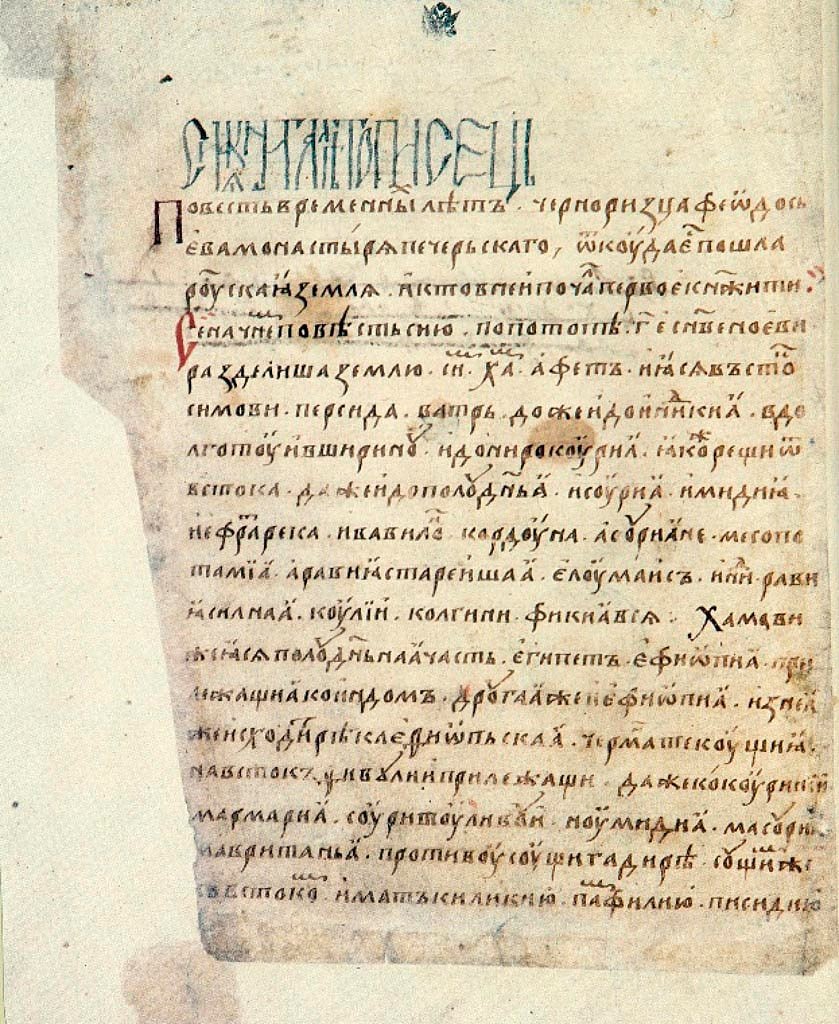 Повесть временны҃ лѣтъ. черноризца феѡдось
ева монастырѧ печерьскаго, ѿкоуда е҃ пошла
роускаꙗ землѧ. и кто в неи поча҃ первое кнѧжити:
Се начне повѣсть сию. по потопѣ. г҃е сн҃ве ноеви
разделиша землю. си҃. ха҃. афетъ. и ꙗсѧ въсто҃
симови. персида. ватрь. доже и до индикиꙗ. в до
лготоу и в ширину. и до нирокоуриꙗ. ꙗкоже рещи ѿ
встока. даже и до полоудн҃ьꙗ. и соуриꙗ. и мидиꙗ.
и ефра҃ река. и вавило҃. кордоуна. асоуриане. месопо
тамиꙗ. аравиꙗ стареишаꙗ. елоумаисъ. инди. рави
ꙗ силнаꙗ. коулии. колгини. фикиꙗ всѧ. Хамови
же ꙗсѧ полоудн҃ьнаꙗ часть. египетъ. ефиѡпиꙗ. при
лежащиꙗ ко индомъ. дроугаꙗ же ефиѡпиꙗ. из неꙗ
же исходи҃ рѣка ефиѡпьскаꙗ. черм҃на текоущиꙗ.
на встокъ. фива. лвии прилежащи. даже и до коуриниꙗ
мармариꙗ. соурити. оуливꙋи. ноумидиꙗ. масоури
мавританьꙗ. противоу соущи гадирѣ. соущимъ же
ко встоко҃. иматъ киликию. памфилию. писидию